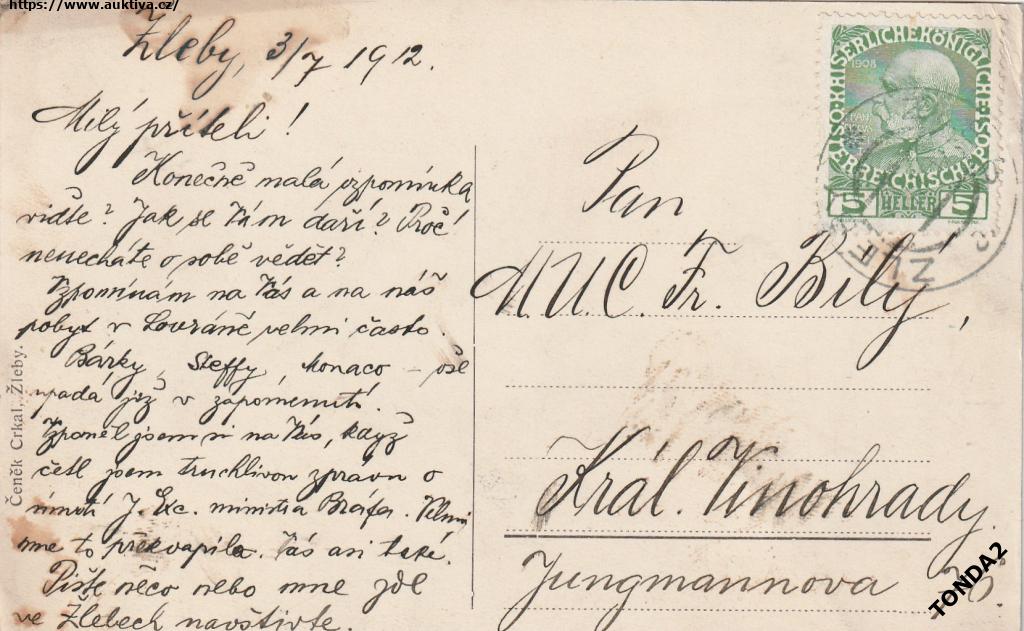 https://www.auktiva.cz/
Žleby, 3/7 1912.
Milý příteli!
Konečně malá vzpomínka
viďte? Jak se Vám daří? Proč
nenecháte o sobě vědět?
Vzpomínám na Vás a na náš
pobyt v Lovráně velmi často.
Bárky, Steffy, Monaco - vše
upadá již v zapomenutí.
Vzpoměl jsem si na Vás, když
četl jsem truchlivou zprávu o
úmrtí J. Exc. ministra Bráfa. Velmi
mne to překvapilo. Vás asi také.
Pište neco nebo mne zde
ve Žlebech navštivte.
Čeněk Crkal, Žleby.
KAISERLICHE KÖNIGLICHE
ÖSTERREICHISCHE POST
1908
5 HELLER 5
Pan
MUC. Fr. Bílý,
Král. Vinohrady.
Jungmannova
TONDA2